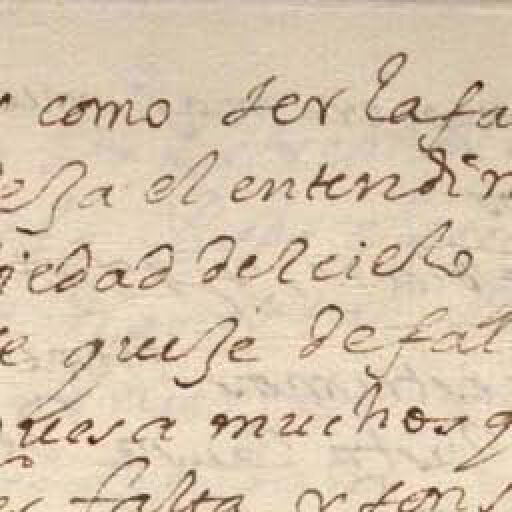 como ser la fa
eza el entendim
iedad del cielo
e quise de fal
ues a muchos q
falta y tens